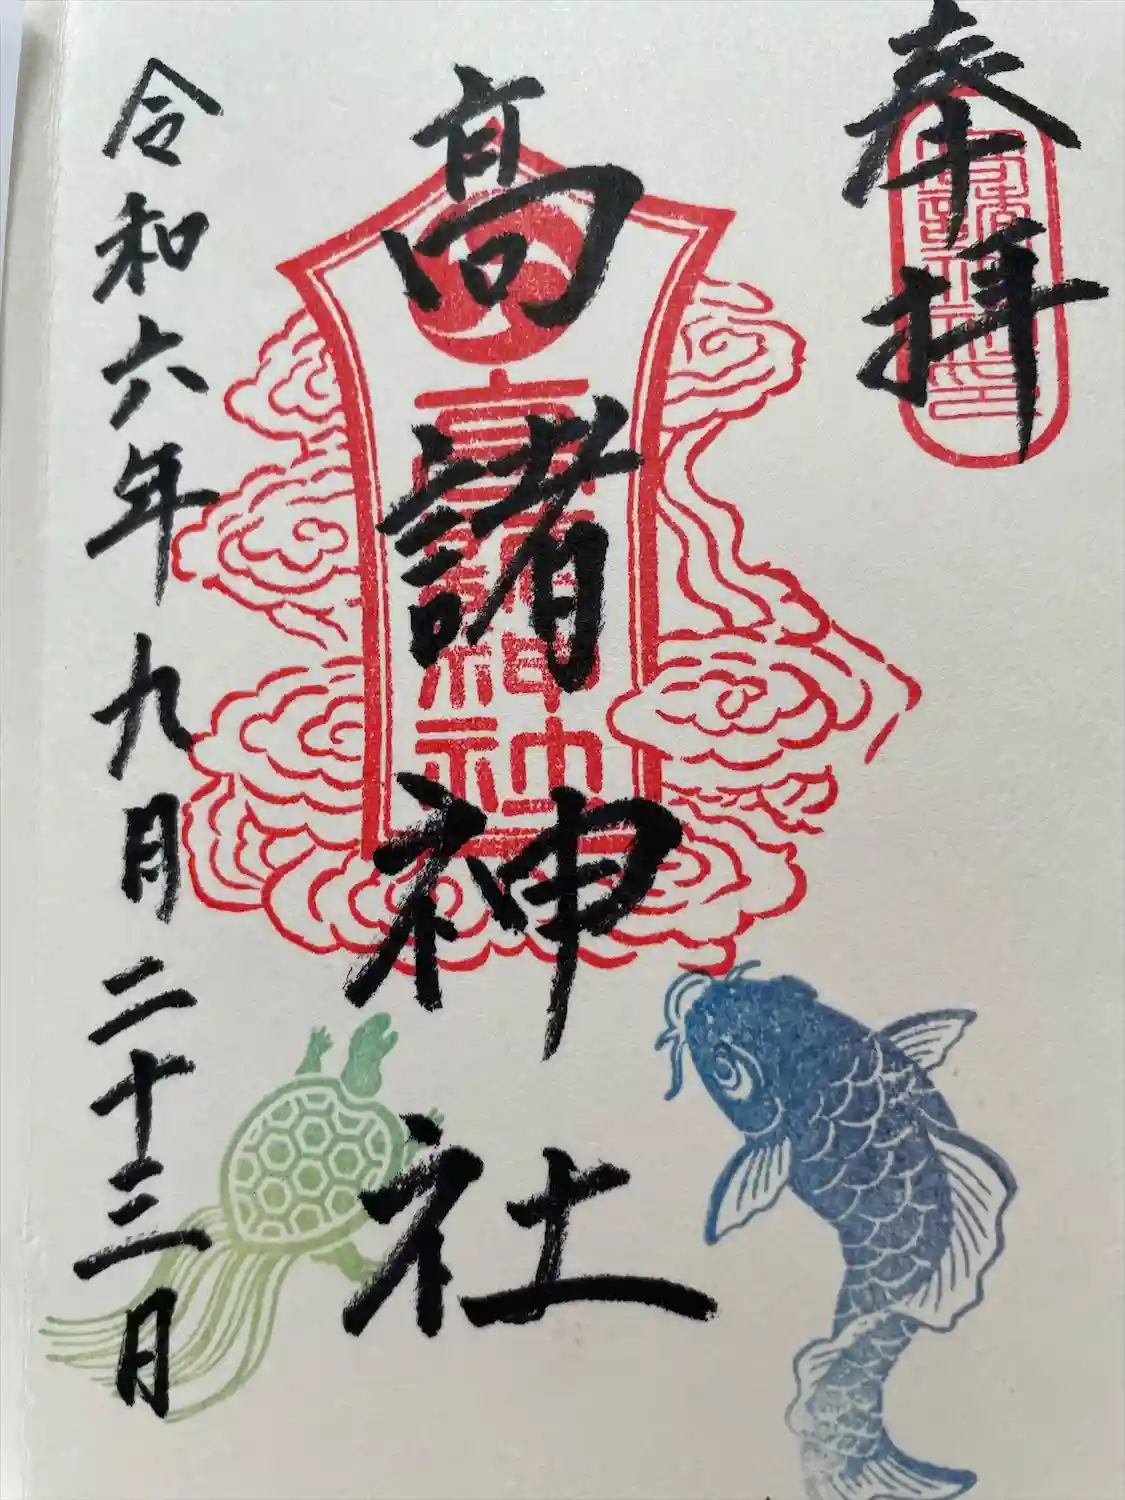 奉拝
高諸神社
高諸神社
令和六年九月二十三日